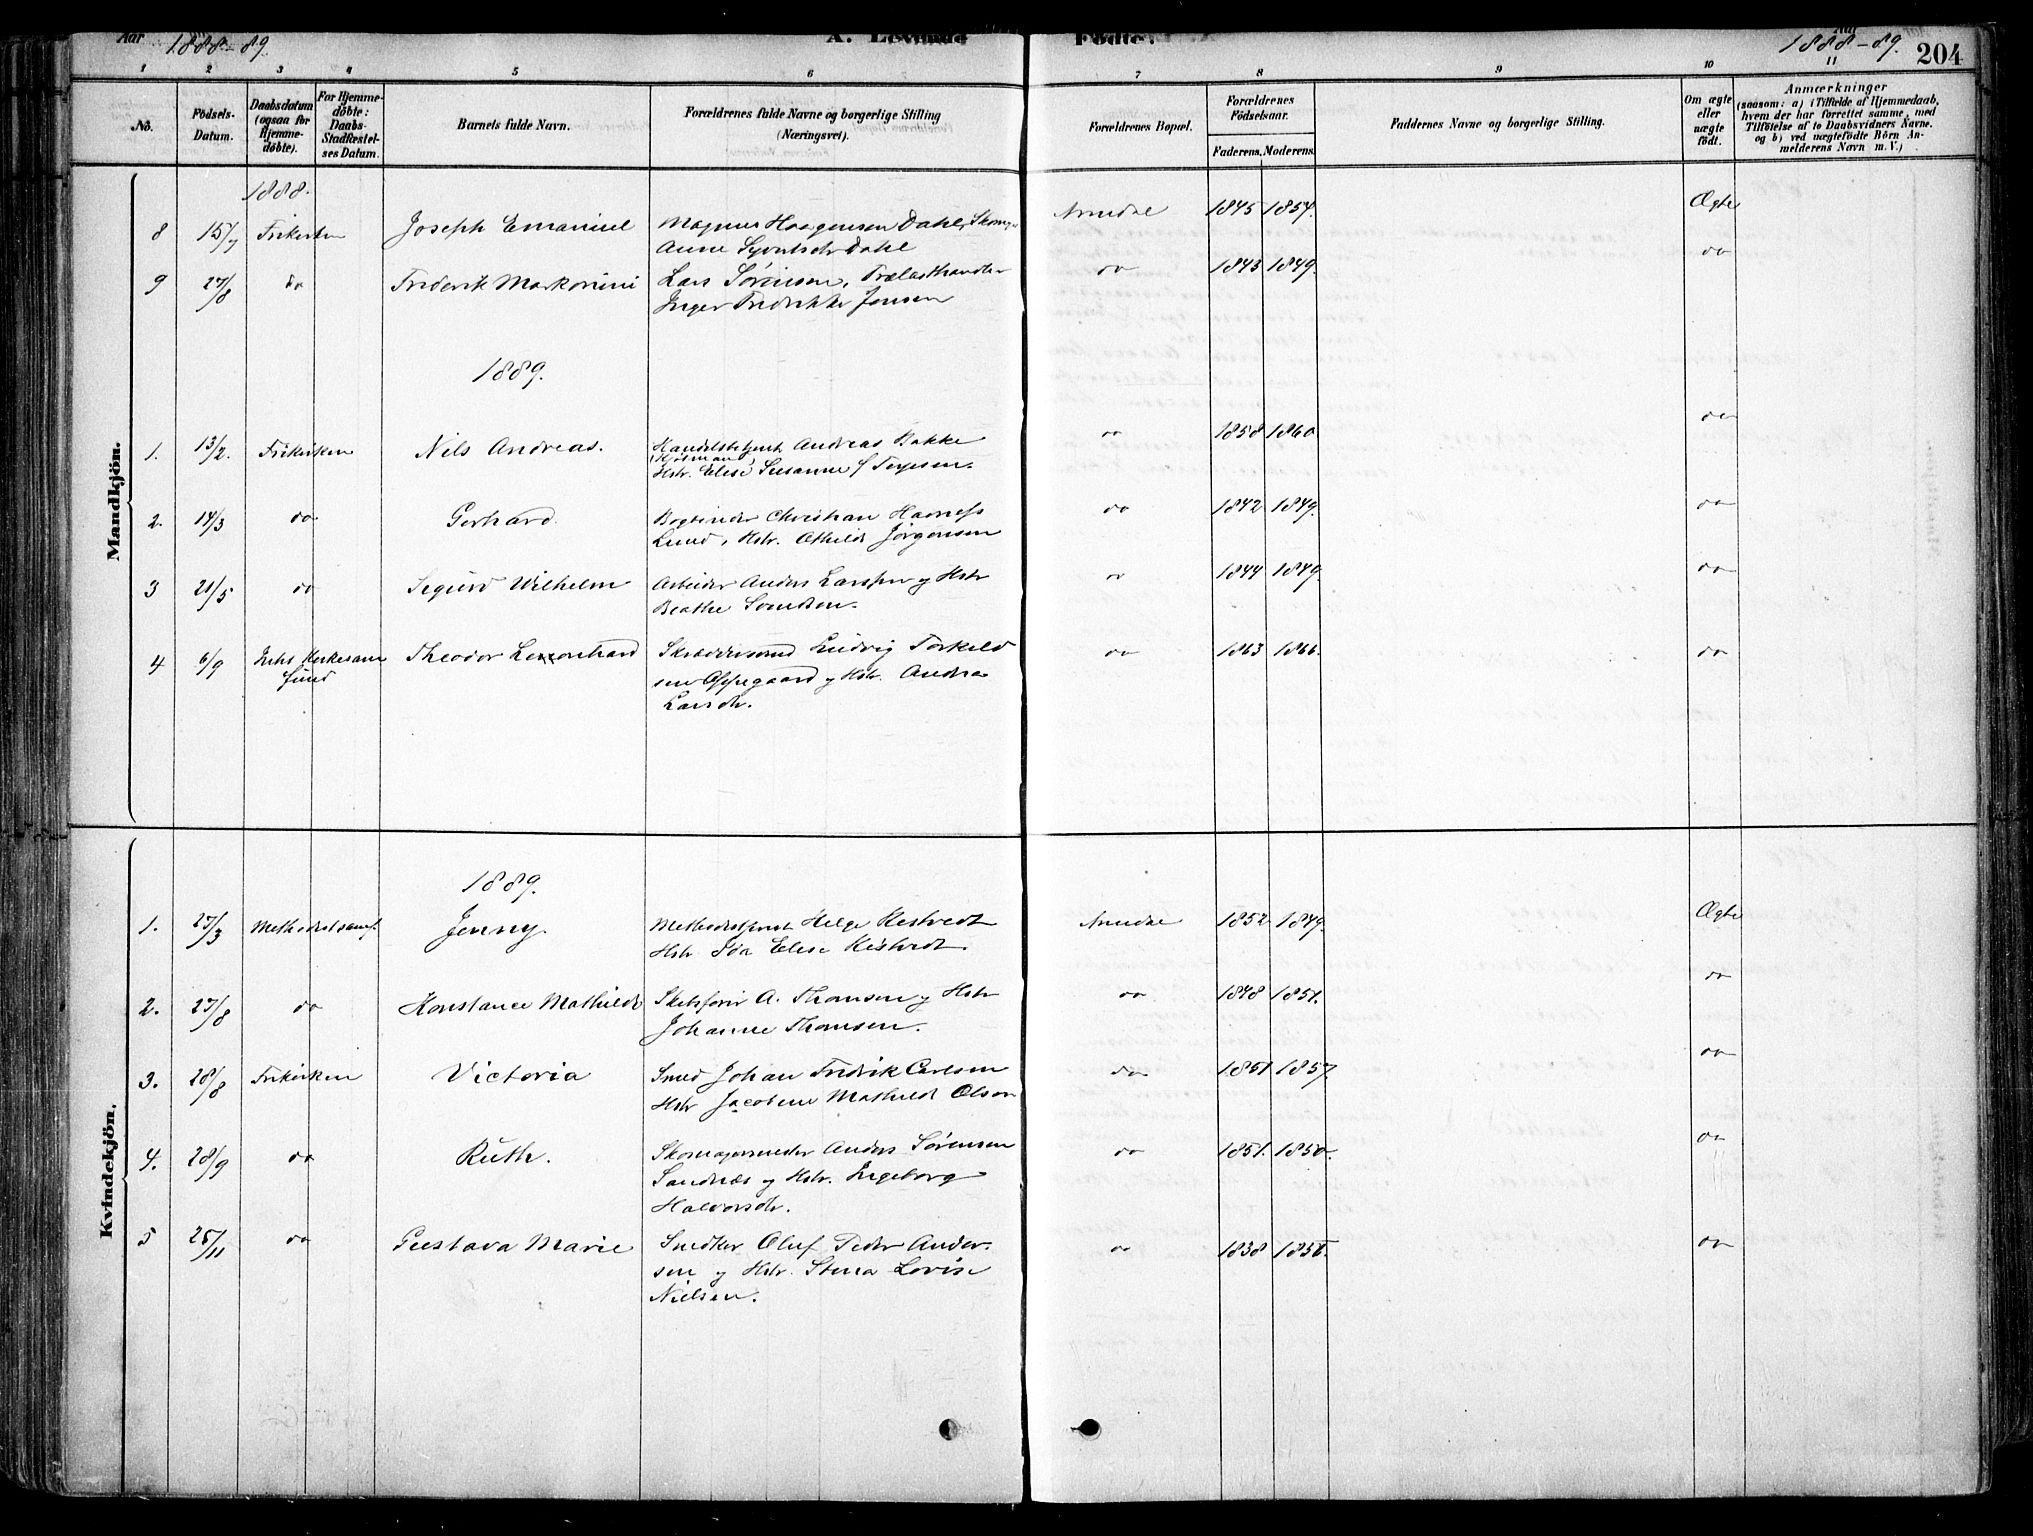 Aar 1888-89. A. Levende Fødte. Aar 1888-89. 204
1 2 3 4 5 6 7 8 9 10 11
No.
Fødsels-
Datum.
Daabsdatum
(ogsaa for
Hjemme-
døbte).
For Hjemme-
døbte:
Daabs-
Stadfæstel-
ses Datum.
Barnets fulde Navn.
Forældrenes fulde Navne og borgerlige Stilling
(Næringsvei).
Forældrenes Bopæl.
Forældrenes
Fødselsaar.
Faderens. Moderens.
Faddernes Navne og borgerlige Stilling.
Om ægte
eller
uægte
født.
Anmærkninger
(saasom: a) i Tilfælde af Hjemmedaab,
hvem der har forrettet samme, med
Tilføielse af to Daabsvidners Navne.
og b) ved uægtefødte Børn An-
melderens Navn m. V.)
Mandkjön.
1888.
8 15/7 Frikirken Joseph Emanuel Magnus Haagensen Dahl, Skom. Arendal 1845 1854. Ægte
Anne Syvertsdr Dahl
9 27/8 do Frederik Markonini Lars Sørensen, Trælasthandler do 1843 1849. do
Inger Fredrikke Jensen
1889.
1. 13/2. Frikirken Nils Andreas. Handelsbetjent Andreas Bakke do 1858 1860 do
Hstr. Elise Susanne f Terjesen.
2. 14/3 do Gerhard. Bogbinder Christian Hannes do 1842 1849. do
Lund, Hstr. Othilde Jørgensen
3 21/5 do Sigurd Wilhelm Arbeider Anders Larssen og Hstr do 1844 1849. do
Beathe Svendsen.
4 6/9 Theodor Leonhard Skræddersvend Ludvig Torkild do 1863 1866. do
sen Oppegaard og Hstr. Andrea
Larsdtr.
Kvindekjön.
1889.
1. 23/3 Methodistsamf. Jenny. Helge Kestvedt Arendal 1852 1849. Ægte
Hstr Elise Kestvedt.
2. 23/8 do Konstance Mathilde Skibsfører A. Thomsen og Hstr do 1848 1851. do
Johanne Thomsen.
3. 28/8 Frikirken Victoria Smed Johan Fredrik Carlsen do 1851 1857. do
Hstr Jacobine Mathilde Olsen
4. 28/9 do Ruth. Skomagermester Anders Sørensen do 1851. 1850. do
Sandnæs og Hstr. Ingeborg
Halvorsdr.
5 25/11 do Gustava Marie Snedker Oluf Peder Ander- do 1838 do
sen og Hstr. Stina Lovise
Nielsen.